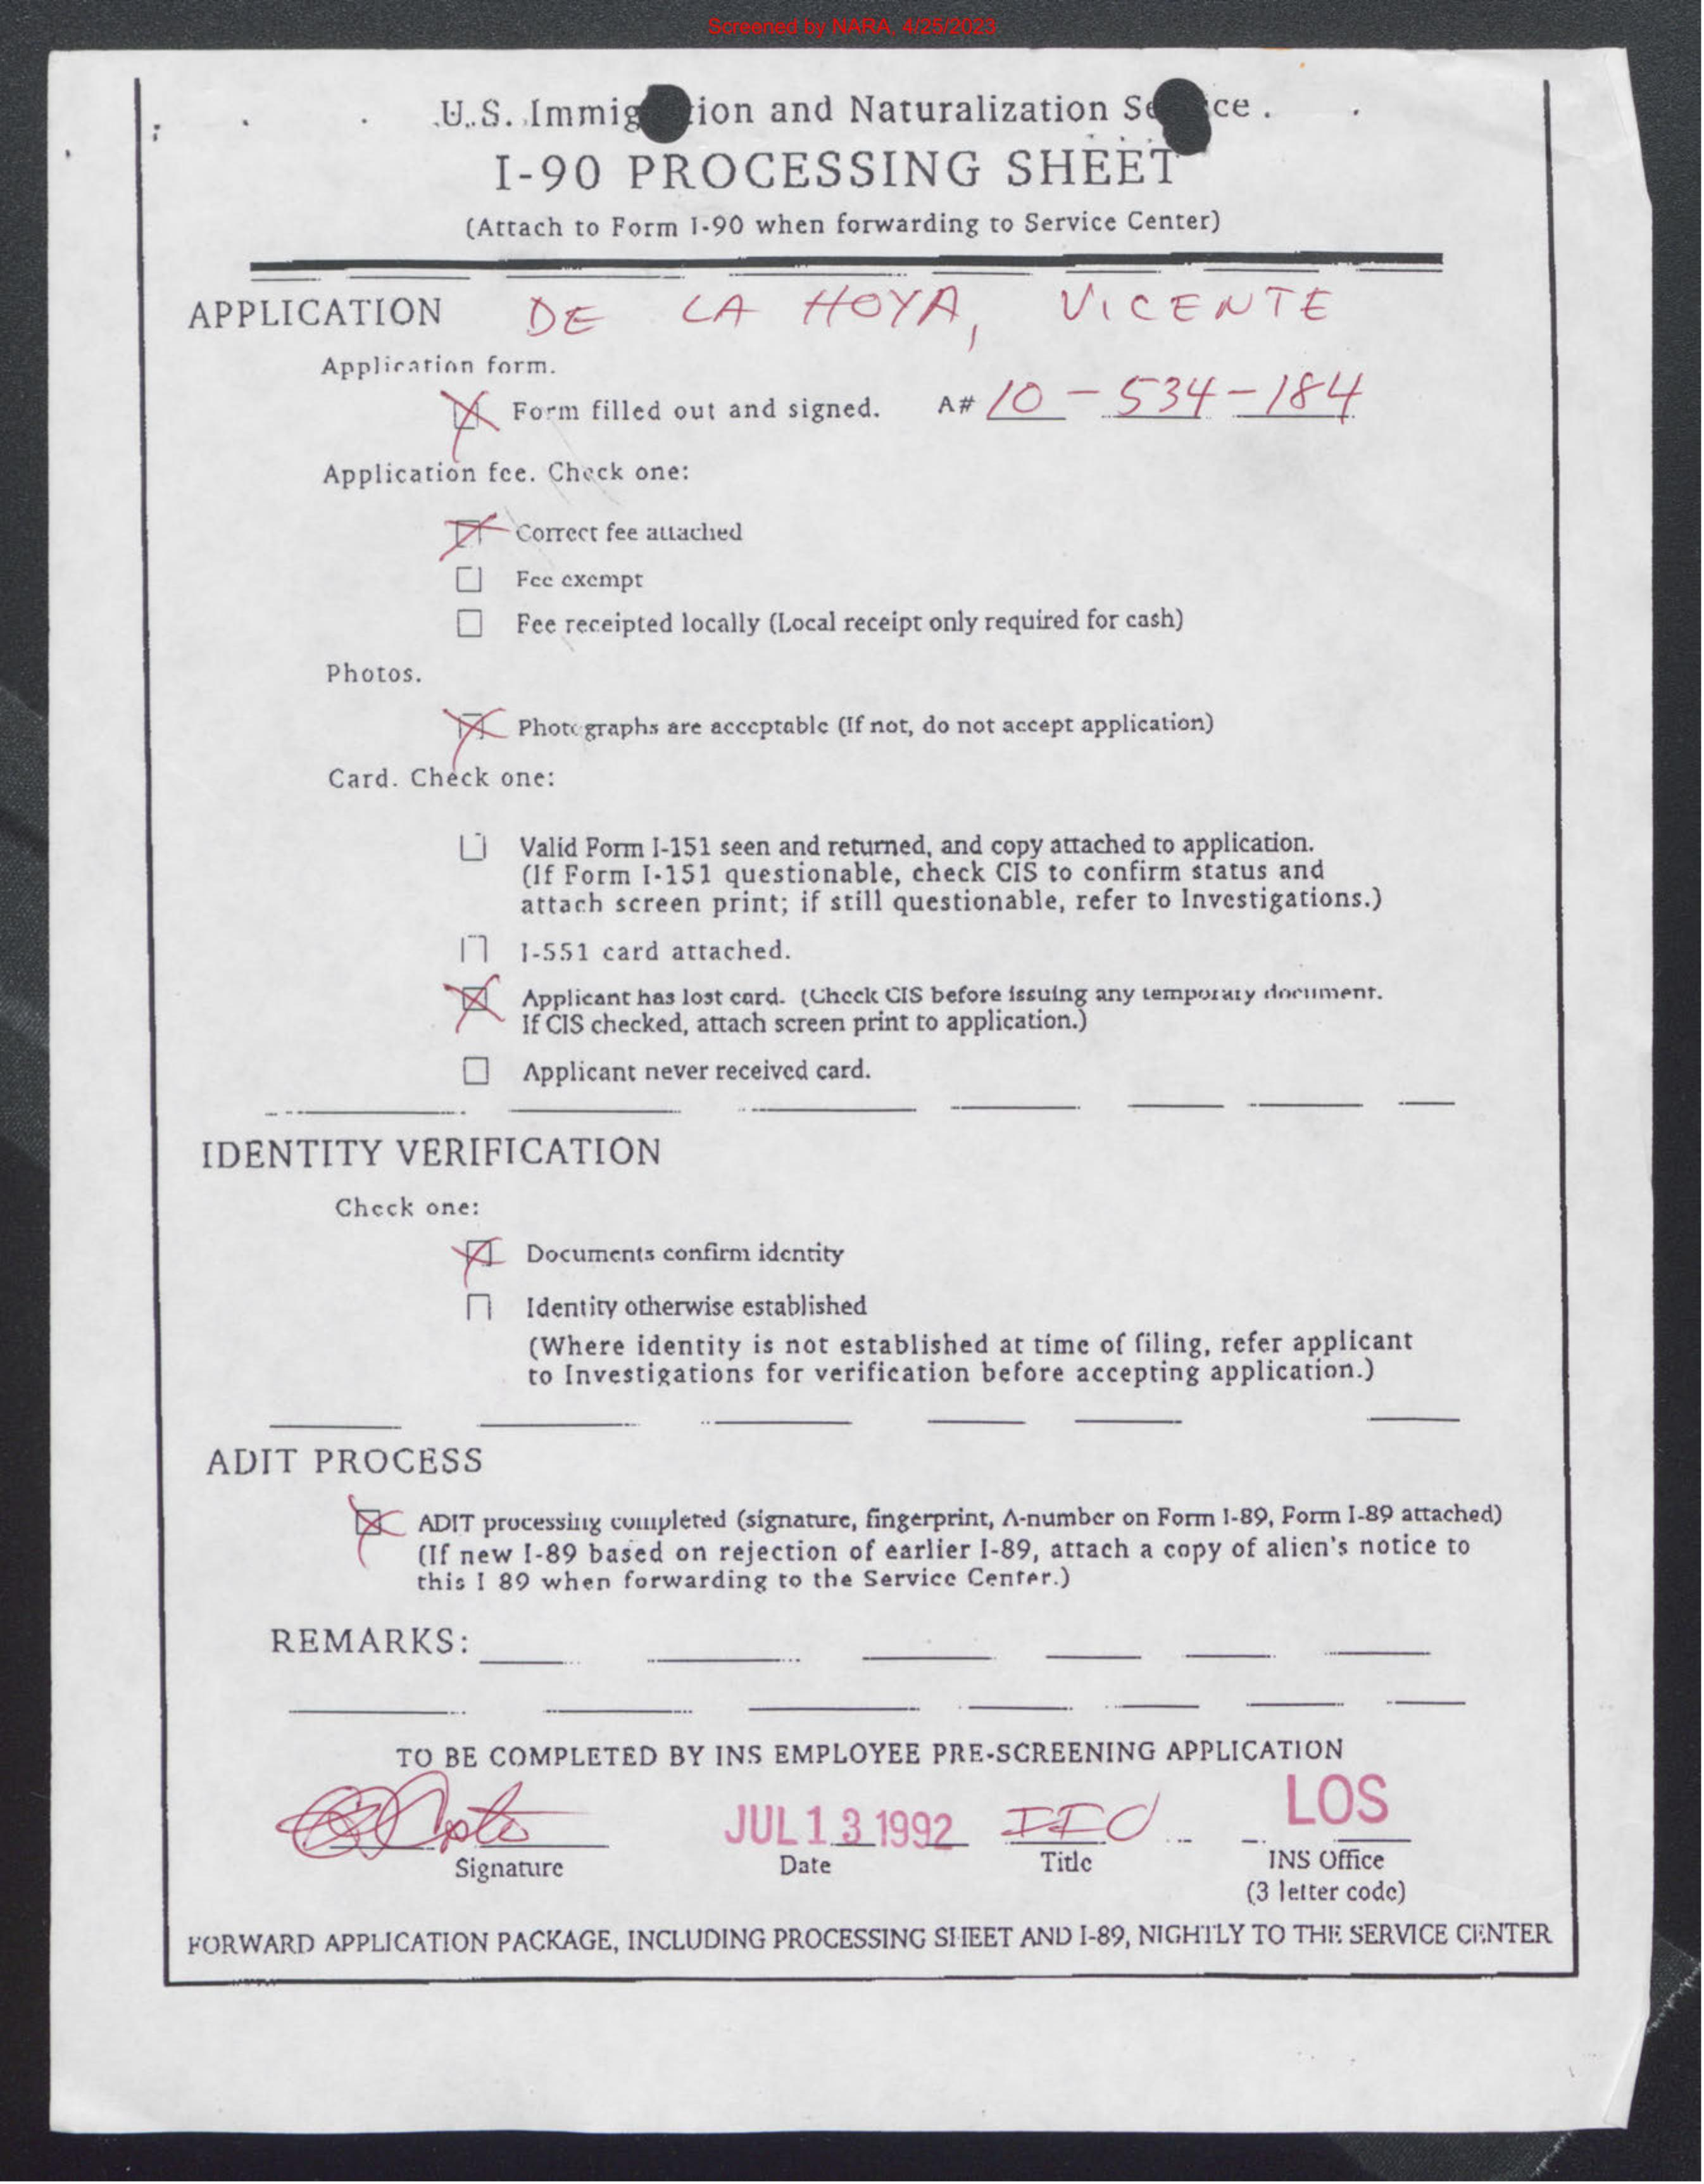 Screened by NARA, 4/25/2023
U.S. Immigration and Naturalization Service
I-90 PROCESSING SHEET
(Attach to Form I-90 when forwarding to Service Center)
APPLICATION DE LA HOYA, VICENTE
Application form.
Form filled out and signed. A# 10-534-184
Application fee. Check one:
Correct fee attached
Fee exempt
Fee receipted locally (Local receipt only required for cash)
Photos.
Photographs are acceptable (If not, do not accept application)
Card. Check one:
Valid Form I-151 seen and returned, and copy attached to application.
(If Form I-151 questionable, check CIS to confirm status and
attach screen print; if still questionable, refer to Investigations.)
I-551 card attached.
Applicant has lost card. (Check CIS before issuing any temporary document.
If CIS checked, attach screen print to application.)
Applicant never received card.
IDENTITY VERIFICATION
Check one:
Documents confirm identity
Identity otherwise established
(Where identity is not established at time of filing, refer applicant
to Investigations for verification before accepting application.)
ADIT PROCESS
ADIT processing completed (signature, fingerprint, A-number on Form I-89, Form I-89 attached)
(If new I-89 based on rejection of earlier I-89, attach a copy of alien's notice to
this I 89 when forwarding to the Service Center.)
REMARKS:
TO BE COMPLETED BY INS EMPLOYEE PRE-SCREENING APPLICATION
JUL 13 1992 IIO LOS
Signature Date Title INS Office
(3 letter code)
FORWARD APPLICATION PACKAGE, INCLUDING PROCESSING SHEET AND I-89, NIGHTLY TO THE SERVICE CENTER